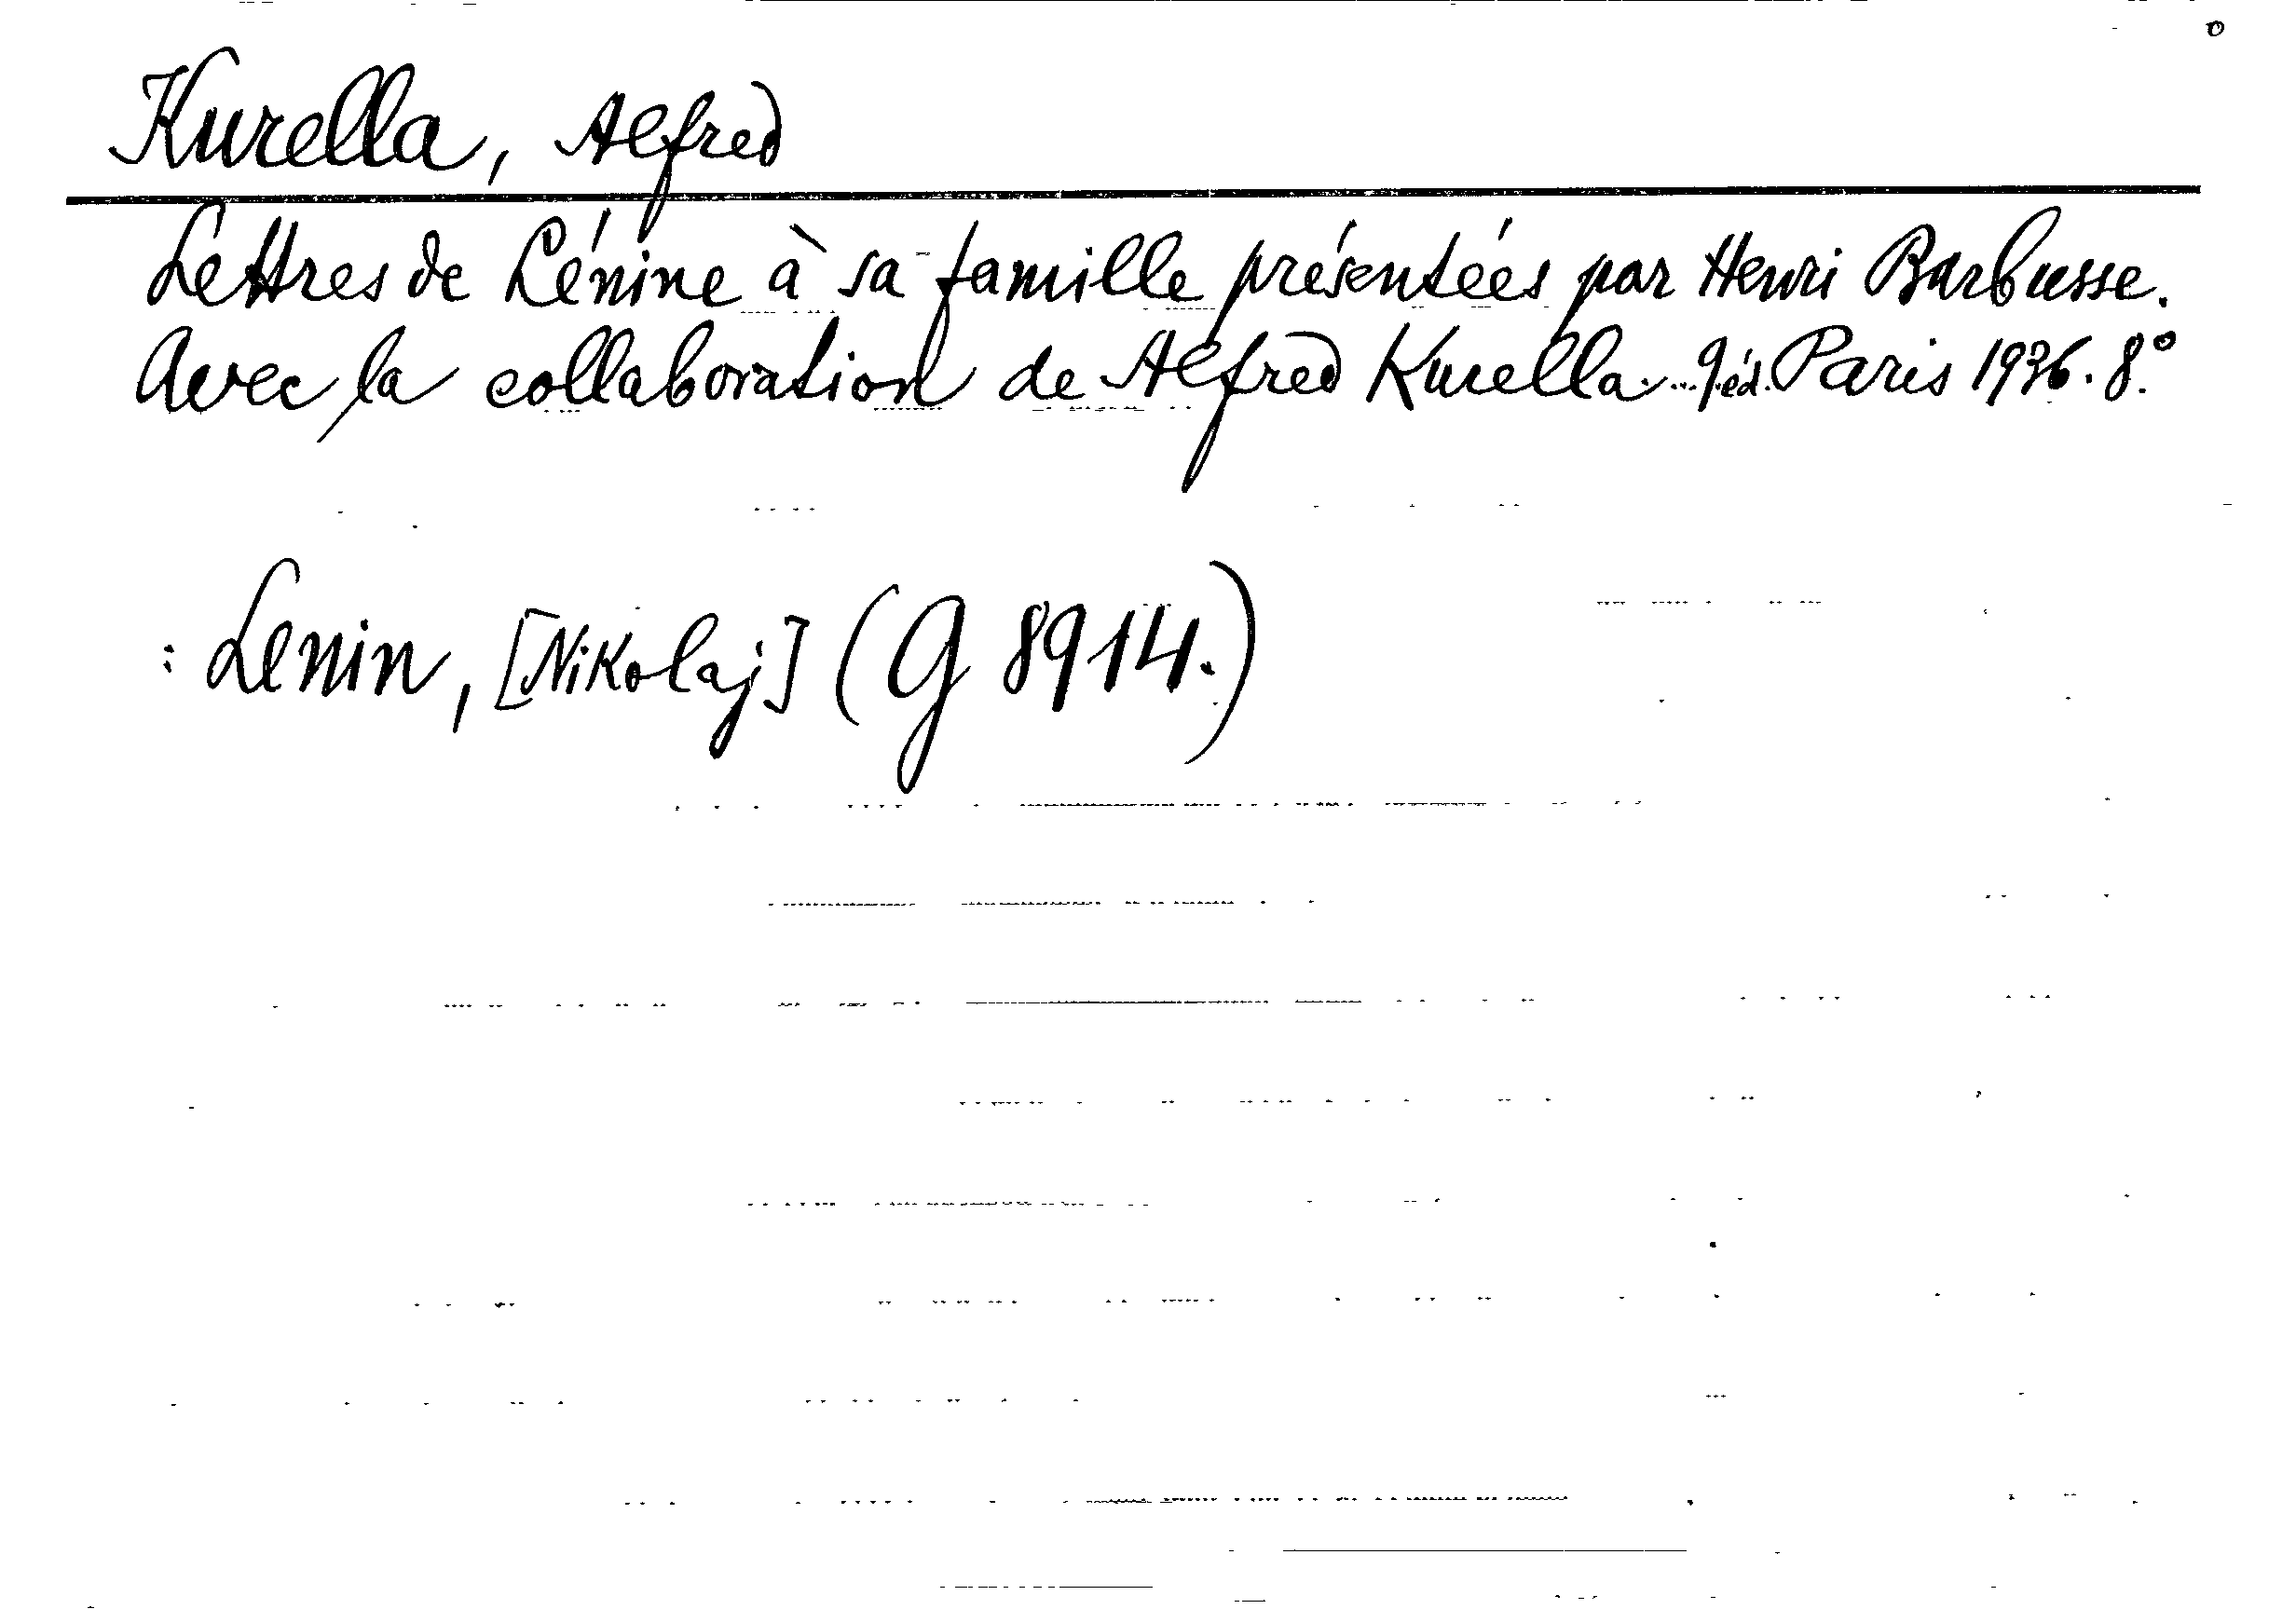 Kurella, Alfred
Lettres de Lénine à sa famille présentées par Henri Barbusse.
Avec la collaboration de Alfred Kurella... 9.éd. Paris 1936. 8.°
: Lenin, [Nikolaj] (G 8914.)